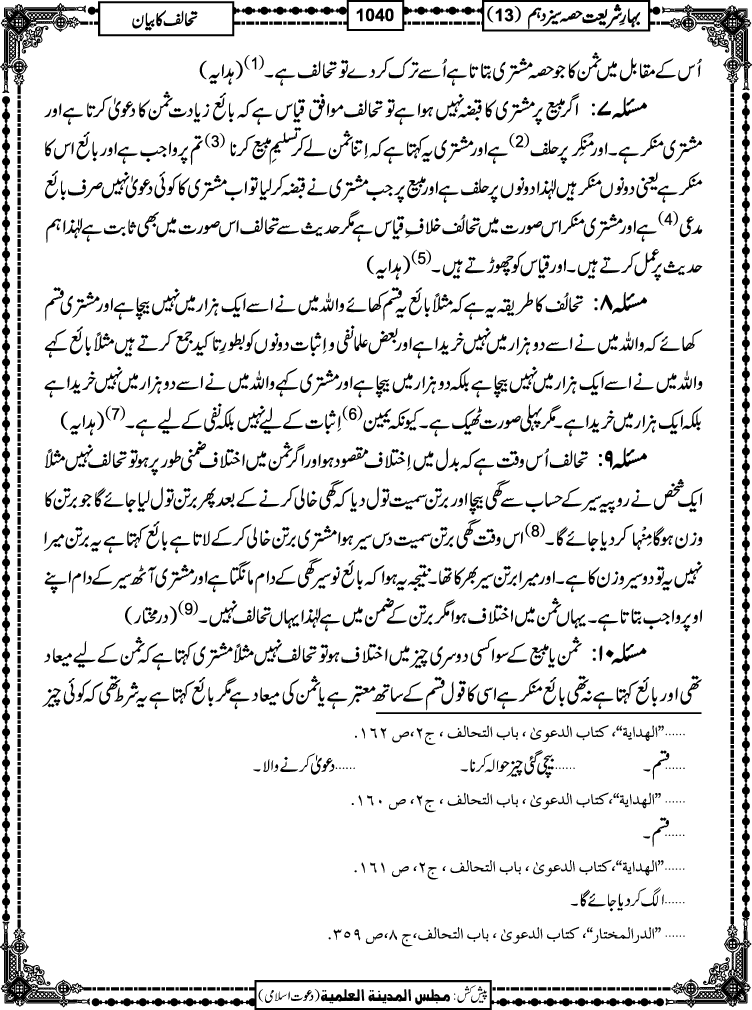 بہارِ شریعت حصہ سیزدہم (13)
1040
تحالف کا بیان
اُس کے مقابل میں ثمن کا جو حصہ مشتری بتاتا ہے اُسے ترک کر دے تو تحالف ہے۔(1) (ہدایہ)
مسئلہ ۷: اگر مبیع پر مشتری کا قبضہ نہیں ہوا ہے تو تحالف موافق قیاس ہے کہ بائع زیادت ثمن کا دعویٰ کرتا ہے اور
مشتری منکر ہے۔ اور مُنکِر پر حلف(2) ہے اور مشتری یہ کہتا ہے کہ اِتنا ثمن لے کر تسلیمِ مبیع کرنا(3) تم پر واجب ہے اور بائع اس کا
منکر ہے یعنی دونوں منکر ہیں لہٰذا دونوں پر حلف ہے اور مبیع پر جب مشتری نے قبضہ کر لیا تو اب مشتری کا کوئی دعویٰ نہیں صرف بائع
مدعی(4) ہے اور مشتری منکر اس صورت میں تحالُف خلافِ قیاس ہے مگر حدیث سے تحالف اس صورت میں بھی ثابت ہے لہٰذا ہم
حدیث پر عمل کرتے ہیں۔ اور قیاس کو چھوڑتے ہیں۔(5) (ہدایہ)
مسئلہ ۸: تحالُف کا طریقہ یہ ہے کہ مثلاً بائع یہ قسم کھائے واللہ میں نے اسے ایک ہزار میں نہیں بیچا ہے اور مشتری قسم
کھائے کہ واللہ میں نے اسے دو ہزار میں نہیں خریدا ہے اور بعض علما نفی و اِثبات دونوں کو بطورِ تاکید جمع کرتے ہیں مثلاً بائع کہے
واللہ میں نے اسے ایک ہزار میں نہیں بیچا ہے بلکہ دو ہزار میں بیچا ہے اور مشتری کہے واللہ میں نے اسے دو ہزار میں نہیں خریدا ہے
بلکہ ایک ہزار میں خریدا ہے۔ مگر پہلی صورت ٹھیک ہے۔ کیونکہ یمین(6) اِثبات کے لیے نہیں بلکہ نفی کے لیے ہے۔(7) (ہدایہ)
مسئلہ ۹: تحالف اُس وقت ہے کہ بدل میں اِختلاف مقصود ہو اور اگر ثمن میں اختلاف ضمنی طور پر ہو تو تحالف نہیں مثلاً
ایک شخص نے روپیہ سیر کے حساب سے گھی بیچا اور برتن سمیت تول دیا کہ گھی خالی کرنے کے بعد پھر برتن تول لیا جائے گا جو برتن کا
وزن ہو گا مِنْہا کر دیا جائے گا۔(8) اس وقت گھی برتن سمیت دس سیر ہوا مشتری برتن خالی کر کے لاتا ہے بائع کہتا ہے یہ برتن میرا
نہیں یہ تو دو سیر وزن کا ہے۔ اور میرا برتن سیر بھر کا تھا۔ نتیجہ یہ ہوا کہ بائع نو سیر گھی کے دام مانگتا ہے اور مشتری آٹھ سیر کے دام اپنے
اوپر واجب بتاتا ہے۔ یہاں ثمن میں اختلاف ہوا مگر برتن کے ضمن میں ہے لہٰذا یہاں تحالف نہیں۔(9) (درمختار)
مسئلہ ۱۰: ثمن یا مبیع کے سوا کسی دوسری چیز میں اختلاف ہو تو تحالف نہیں مثلاً مشتری کہتا ہے کہ ثمن کے لیے میعاد
تھی اور بائع کہتا ہے نہ تھی بائع منکر ہے اسی کا قول قسم کے ساتھ معتبر ہے یا ثمن کی میعاد ہے مگر بائع کہتا ہے یہ شرط تھی کہ کوئی چیز
......"الهداية"، كتاب الدعوىٰ ، باب التحالف ، ج٢،ص ١٦٢.
......قسم۔ ......بیچی گئی چیز حوالہ کرنا۔ ......دعویٰ کرنے والا۔
...... "الهداية"،كتاب الدعوىٰ ، باب التحالف ، ج٢، ص ١٦٠.
......قسم۔
......"الهداية"،كتاب الدعوىٰ ، باب التحالف ، ج٢، ص ١٦١.
......الگ کر دیا جائے گا۔
...... "الدرالمختار"، كتاب الدعوىٰ ، باب التحالف،ج ٨،ص ٣٥٩.
پیش کش: مجلس المدینة العلمیة (دعوتِ اسلامی)